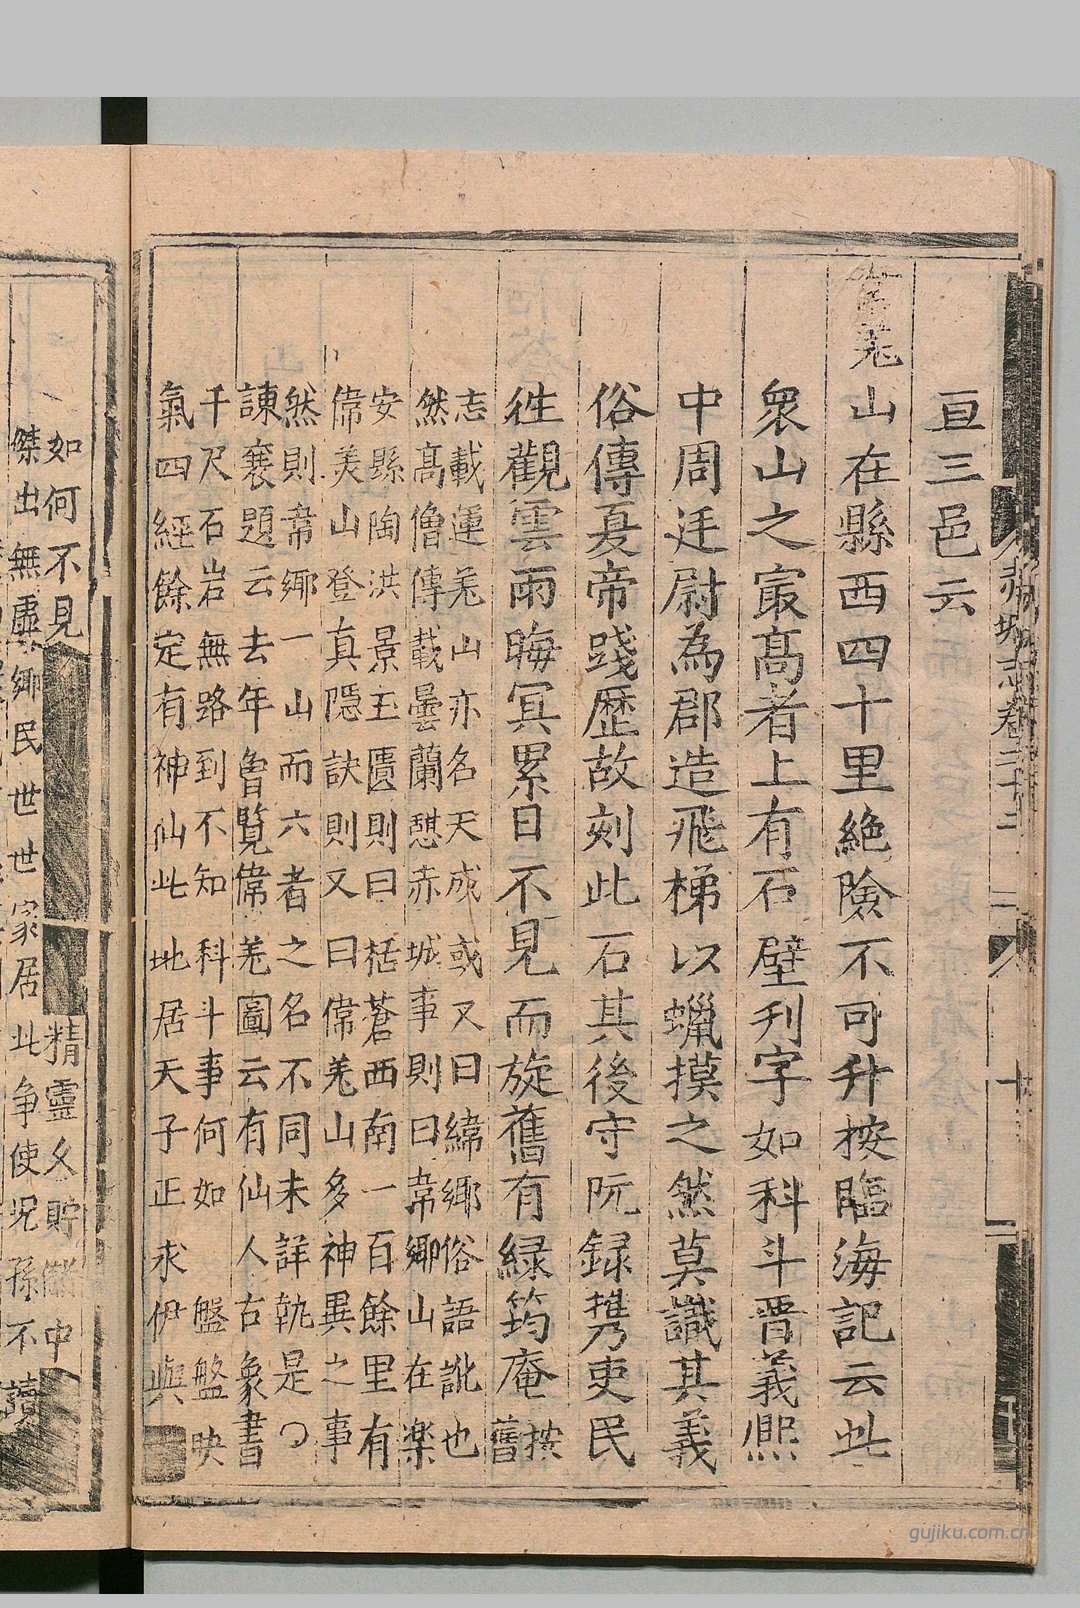 亘三邑云
韋羌山在縣西四十里絶險不可升按臨海記云此
衆山之冣髙者上有石壁刋字如科斗晋義熈
中周廷尉為郡造飛梯以蠟摸之然莫識其義
俗傳夏帝踐歷故刻此石其後守阮録携吏民
徃觀雲雨晦冥累日不見而旋舊有緑筠庵
按舊
志載運羌山亦名天成或又曰緯郷俗語訛也
然髙僧傳載曇蘭憇赤城事則曰韋郷山在楽
安縣陶洪景玉匱則曰括蒼西南一百餘里有
偉羙山登真隱訣則又曰偉羌山多神異之事
然則韋郷一山而六者之名不同未詳孰是
諌襄題云去年曾覽偉羌圖云有仙人古象書
千尺石岩無路到不知科斗事何如盤盤映
氣四經餘定有神仙此地居天子正求伊與
赤城志卷二十二
十
如何不見
精靈久貯
中
傑出無虚郷民世世家居此争使児孫不讀
gujiku.com.cn